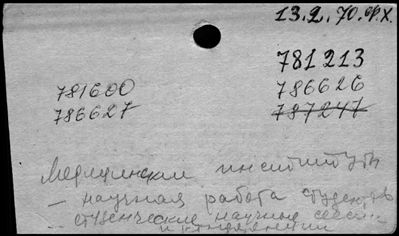 13.2.70.Ф.Х.
781213
781600 786626
786627 787247
Медицинские институты
— научная работа студентов
— студенческие научные сессии
и конференции